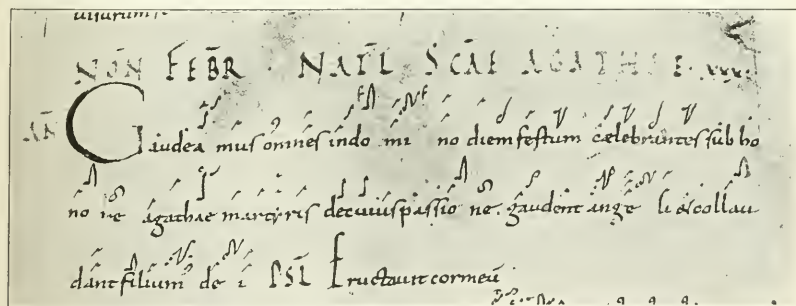 uisurum
NON FEBR NATL SCAE AGATHE XXX
AN Gaudea mus omnes indo mi no diem festum caelebrantes sub ho
no re agathae martyris de cuius passio ne gaudent ange li & collau
dant filium de i PSL Eructauit cor meu